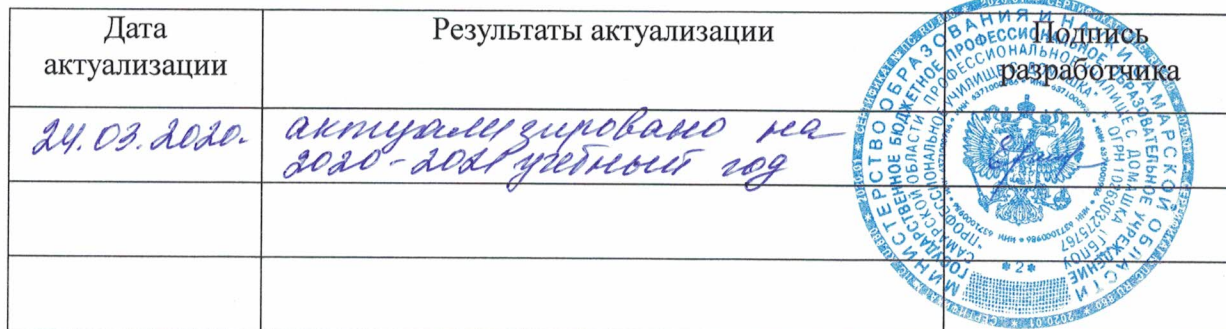 Дата
актуализации
Результаты актуализации
Подпись
разработчика
24.03.2020.
актуализировано на
2020-2021 учебный год
МИНИСТЕРСТВО ОБРАЗОВАНИЯ И НАУКИ САМАРСКОЙ ОБЛАСТИ
ГОСУДАРСТВЕННОЕ БЮДЖЕТНОЕ ПРОФЕССИОНАЛЬНОЕ ОБРАЗОВАТЕЛЬНОЕ УЧРЕЖДЕНИЕ
САМАРСКОЙ ОБЛАСТИ "ПРОФЕССИОНАЛЬНОЕ УЧИЛИЩЕ С. ДОМАШКА" (ГБПОУ
ОГРН 1026303275767
ИНН 6371000986
* 2 *